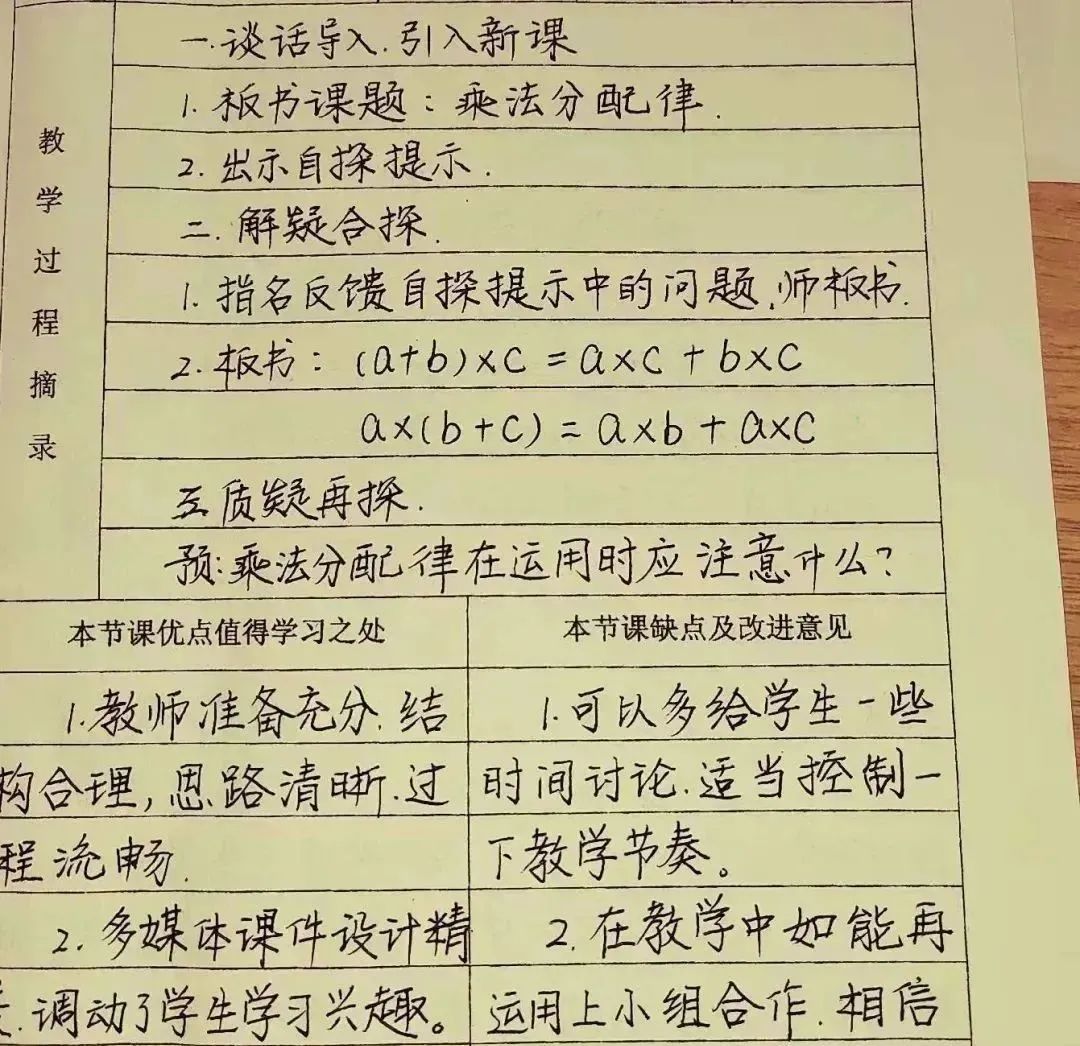 教学过程摘录
一.谈话导入.引入新课
1.板书课题：乘法分配律.
2.出示自探提示.
二.解疑合探.
1.指名反馈自探提示中的问题,师板书.
2.板书：(a+b)×c=a×c+b×c
a×(b+c)=a×b+a×c
三.质疑再探.
预:乘法分配律在运用时应注意什么?
本节课优点值得学习之处
1.教师准备充分.结
构合理,思路清晰.过
程流畅.
2.多媒体课件设计精
.调动了学生学习兴趣。
本节课缺点及改进意见
1.可以多给学生一些
时间讨论.适当控制一
下教学节奏。
2.在教学中如能再
运用上小组合作.相信